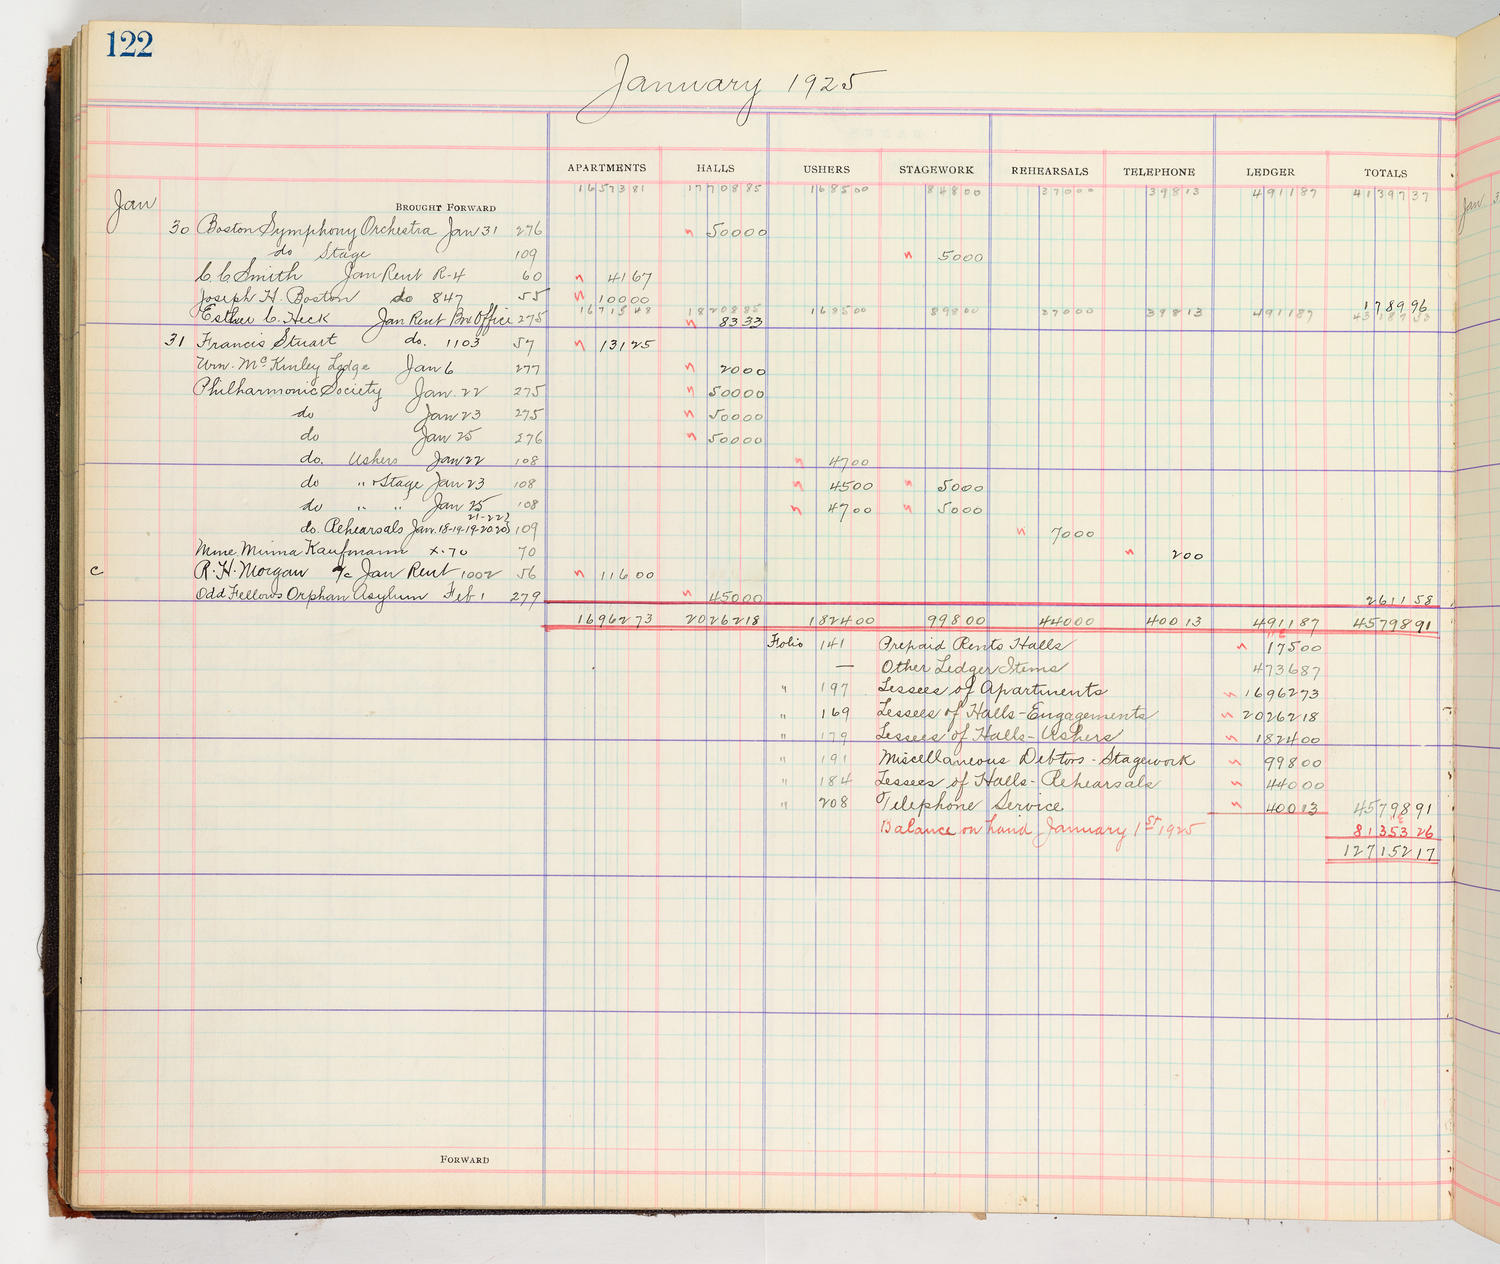 122
January 1925
APARTMENTS HALLS USHERS STAGEWORK REHEARSALS TELEPHONE LEDGER TOTALS
1657381 1770885 168500 84800 37000 39813 491187 4139737
Jan BROUGHT FORWARD
30 Boston Symphony Orchestra Jan 31 276 50000
do Stage 109 5000
C. C. Smith Jan Rent R-4 60 4167
Joseph H. Boston do 847 55 10000 178996
1671548 1820885 168500 89800 37000 39813 491187
Esther C. Heck Jan Rent Box Office 275 8333
31 Francis Stuart do. 1103 57 13125
Wm. McKinley Lodge Jan 6 277 2000
Philharmonic Society Jan. 22 275 50000
do Jan 23 275 50000
do Jan 25 276 50000
do. Ushers Jan 22 108 4700
do " + Stage Jan 23 108 4500 5000
do " " Jan 25 108 4700 5000
21-22)
do. Rehearsals Jan. 18-19-19-20-20) 109 7000
Mme Minna Kaufmann x.70 70 200
c R. H. Morgan a/c Jan Rent 1002 56 11600
Odd Fellows Orphan Asylum Feb 1 279 45000 261158
1696273 2026218 182400 99800 44000 40013 491187 4579891
Folio 141 Prepaid Rents Halls 17500
— Other Ledger Items 473687
" 197 Lessees of Apartments 1696273
" 169 Lessees of Halls - Engagements 2026218
" 179 Lessees of Halls - Ushers 182400
" 191 Miscellaneous Debtors - Stagework 99800
" 184 Lessees of Halls - Rehearsals 44000
" 208 Telephone Service 40013 4579891
Balance on hand January 1st 1925 8135326
12715217
FORWARD
Jan